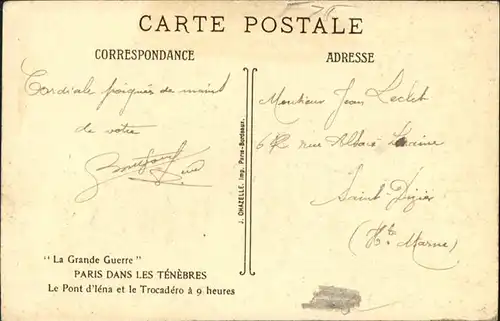 CARTE POSTALE
CORRESPONDANCE
ADRESSE
Cordiale poignée de main
de votre
Monsieur Jean Leclet
62 rue Albaie
Saint-Dizier
(Hte Marne)
J. CHAZELLE. Imp. Paris-Bordeaux.
"La Grande Guerre"
PARIS DANS LES TÉNÈBRES
Le Pont d'Iéna et le Trocadéro à 9 heures